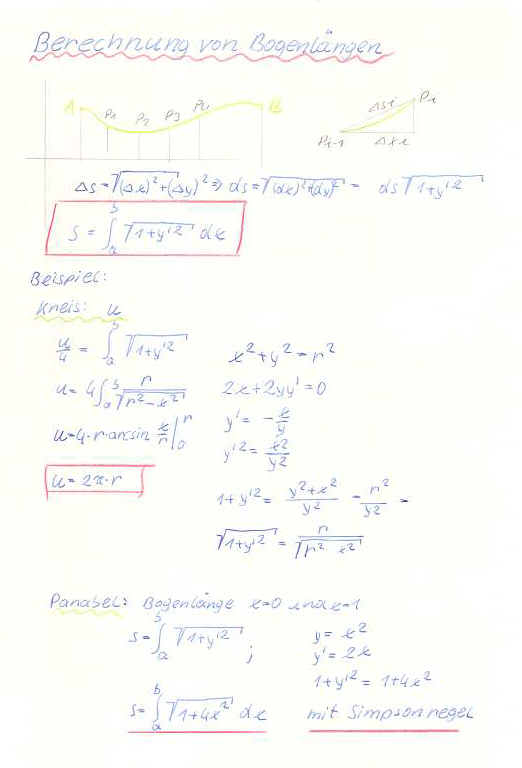 Berechnung von Bogenlängen
A P1 P2 P3 P4 B
Δsi Pi
Pi-1 Δxi
Δs = √(Δx)² + (Δy)² ⇒ ds = √(dx)² + (dy)² = ds √1+y'²
s = ∫ₐᵇ √1+y'² dx
Beispiel:
Kreis: u
u/4 = ∫ₐᵇ √1+y'²
x² + y² = r²
u = 4 ∫ₐᵇ r/√r²-x²
2x + 2yy' = 0
u = 4·r·arcsin x/r |₀ʳ
y' = - x/y
y'² = x²/y²
u = 2π·r
1+y'² = y²+x²/y² = r²/y² =
√1+y'² = r/√r² x²
Parabel: Bogenlänge x=0 und x=1
s = ∫ₐᵇ √1+y'² ;
y = x²
y' = 2x
1+y'² = 1+4x²
s = ∫ₐᵇ √1+4x² dx
mit Simpsonregel